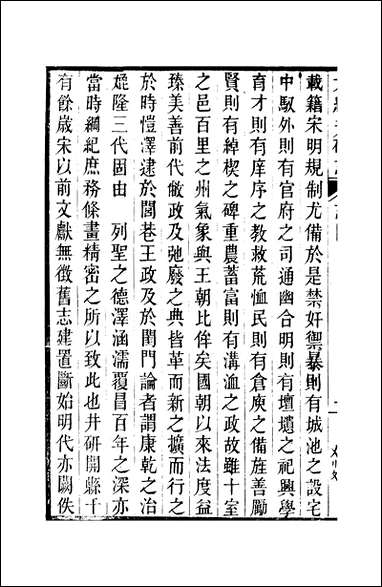 載籍宋明規制尤備於是禁奸禦暴則有城池之設宅
中馭外則有官府之司通幽合明則有壇壝之祀興學
育才則有庠序之教救荒恤民則有倉庾之備旌善勵
賢則有綽楔之碑重農蓄富則有溝洫之政故雖十室
之邑百里之州氣象與王朝比侔矣國朝以來法度益
臻美善前代敝政及弛廢之典皆革而新之擴而行之
於時愷澤逮於閭巷王政及於閨門論者謂康乾之治
媲隆三代固由 列聖之德澤涵濡覆昌百年之深亦
當時綱紀庶務條畫精密之所以致此也井研開縣千
有餘歲宋以前文獻無徵舊志建置斷始明代亦闕佚